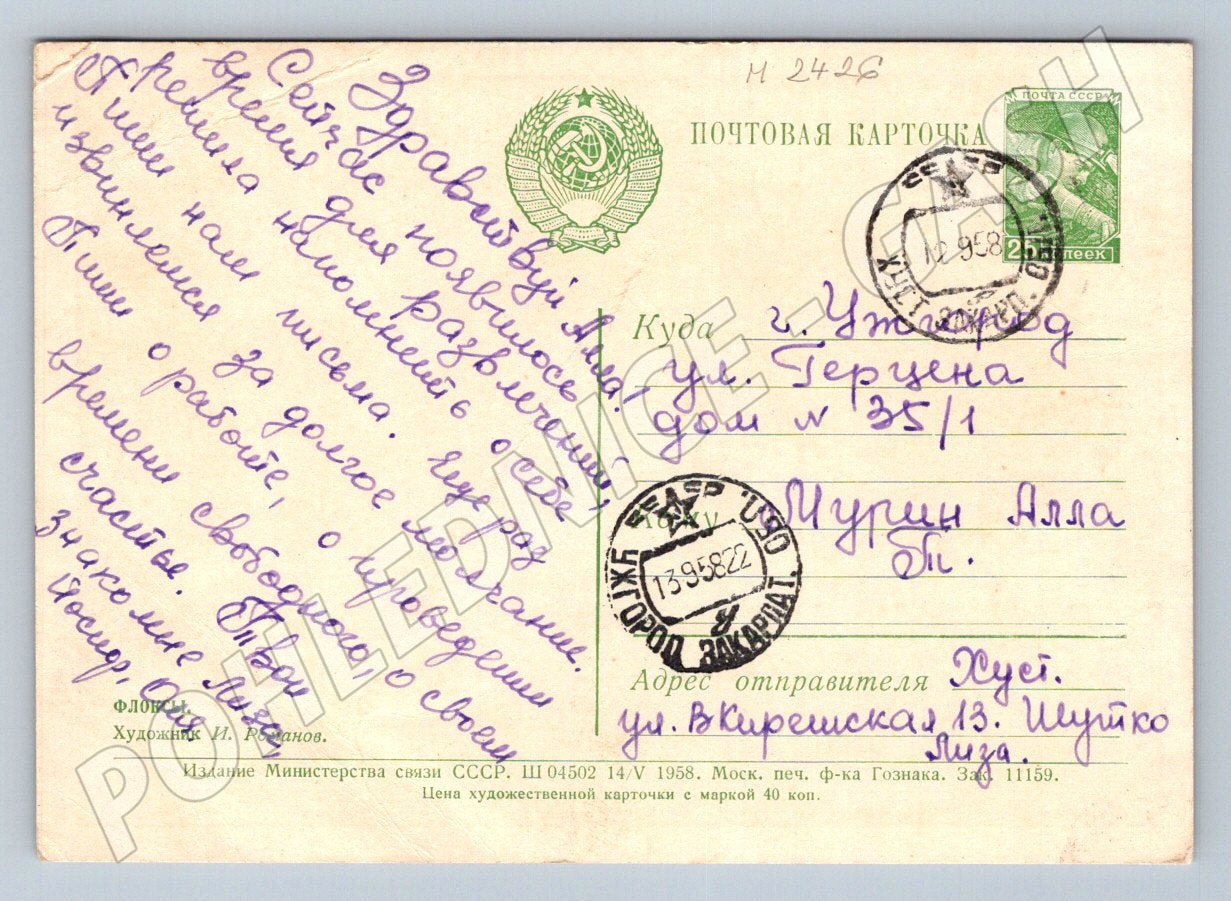 М 2426
ПОЧТА СССР
ПОЧТОВАЯ КАРТОЧКА
25 копеек
СССР
12 9 58
ЗАКАРП.
Здравствуй Алла,
Сейчас появилось
время для развлечений,
решила напомнить о себе
Пиши нам письма. Еще раз
извиняемся за долгое молчание.
Пиши о работе, о проведении
времени свободного, о своем
счастье. Твои
знакомые Лиза,
Йосиф, Оля
Куда г. Ужгород
ул. Герцена
дом N 35/1
Кому Мурин Алла
Т.
СССР
13 9 58 22
УЖГОРОД ЗАКАРПАТ. ОБЛ.
У
Адрес отправителя Хуст.
ул. Шутко
Лиза.
ФЛОКСЫ.
Художник И. Романов.
Издание Министерства связи СССР. Ш 04502 14/V 1958. Моск. печ. ф-ка Гознака. Зак. 11159.
Цена художественной карточки с маркой 40 коп.
POHLEDNICE - CASH